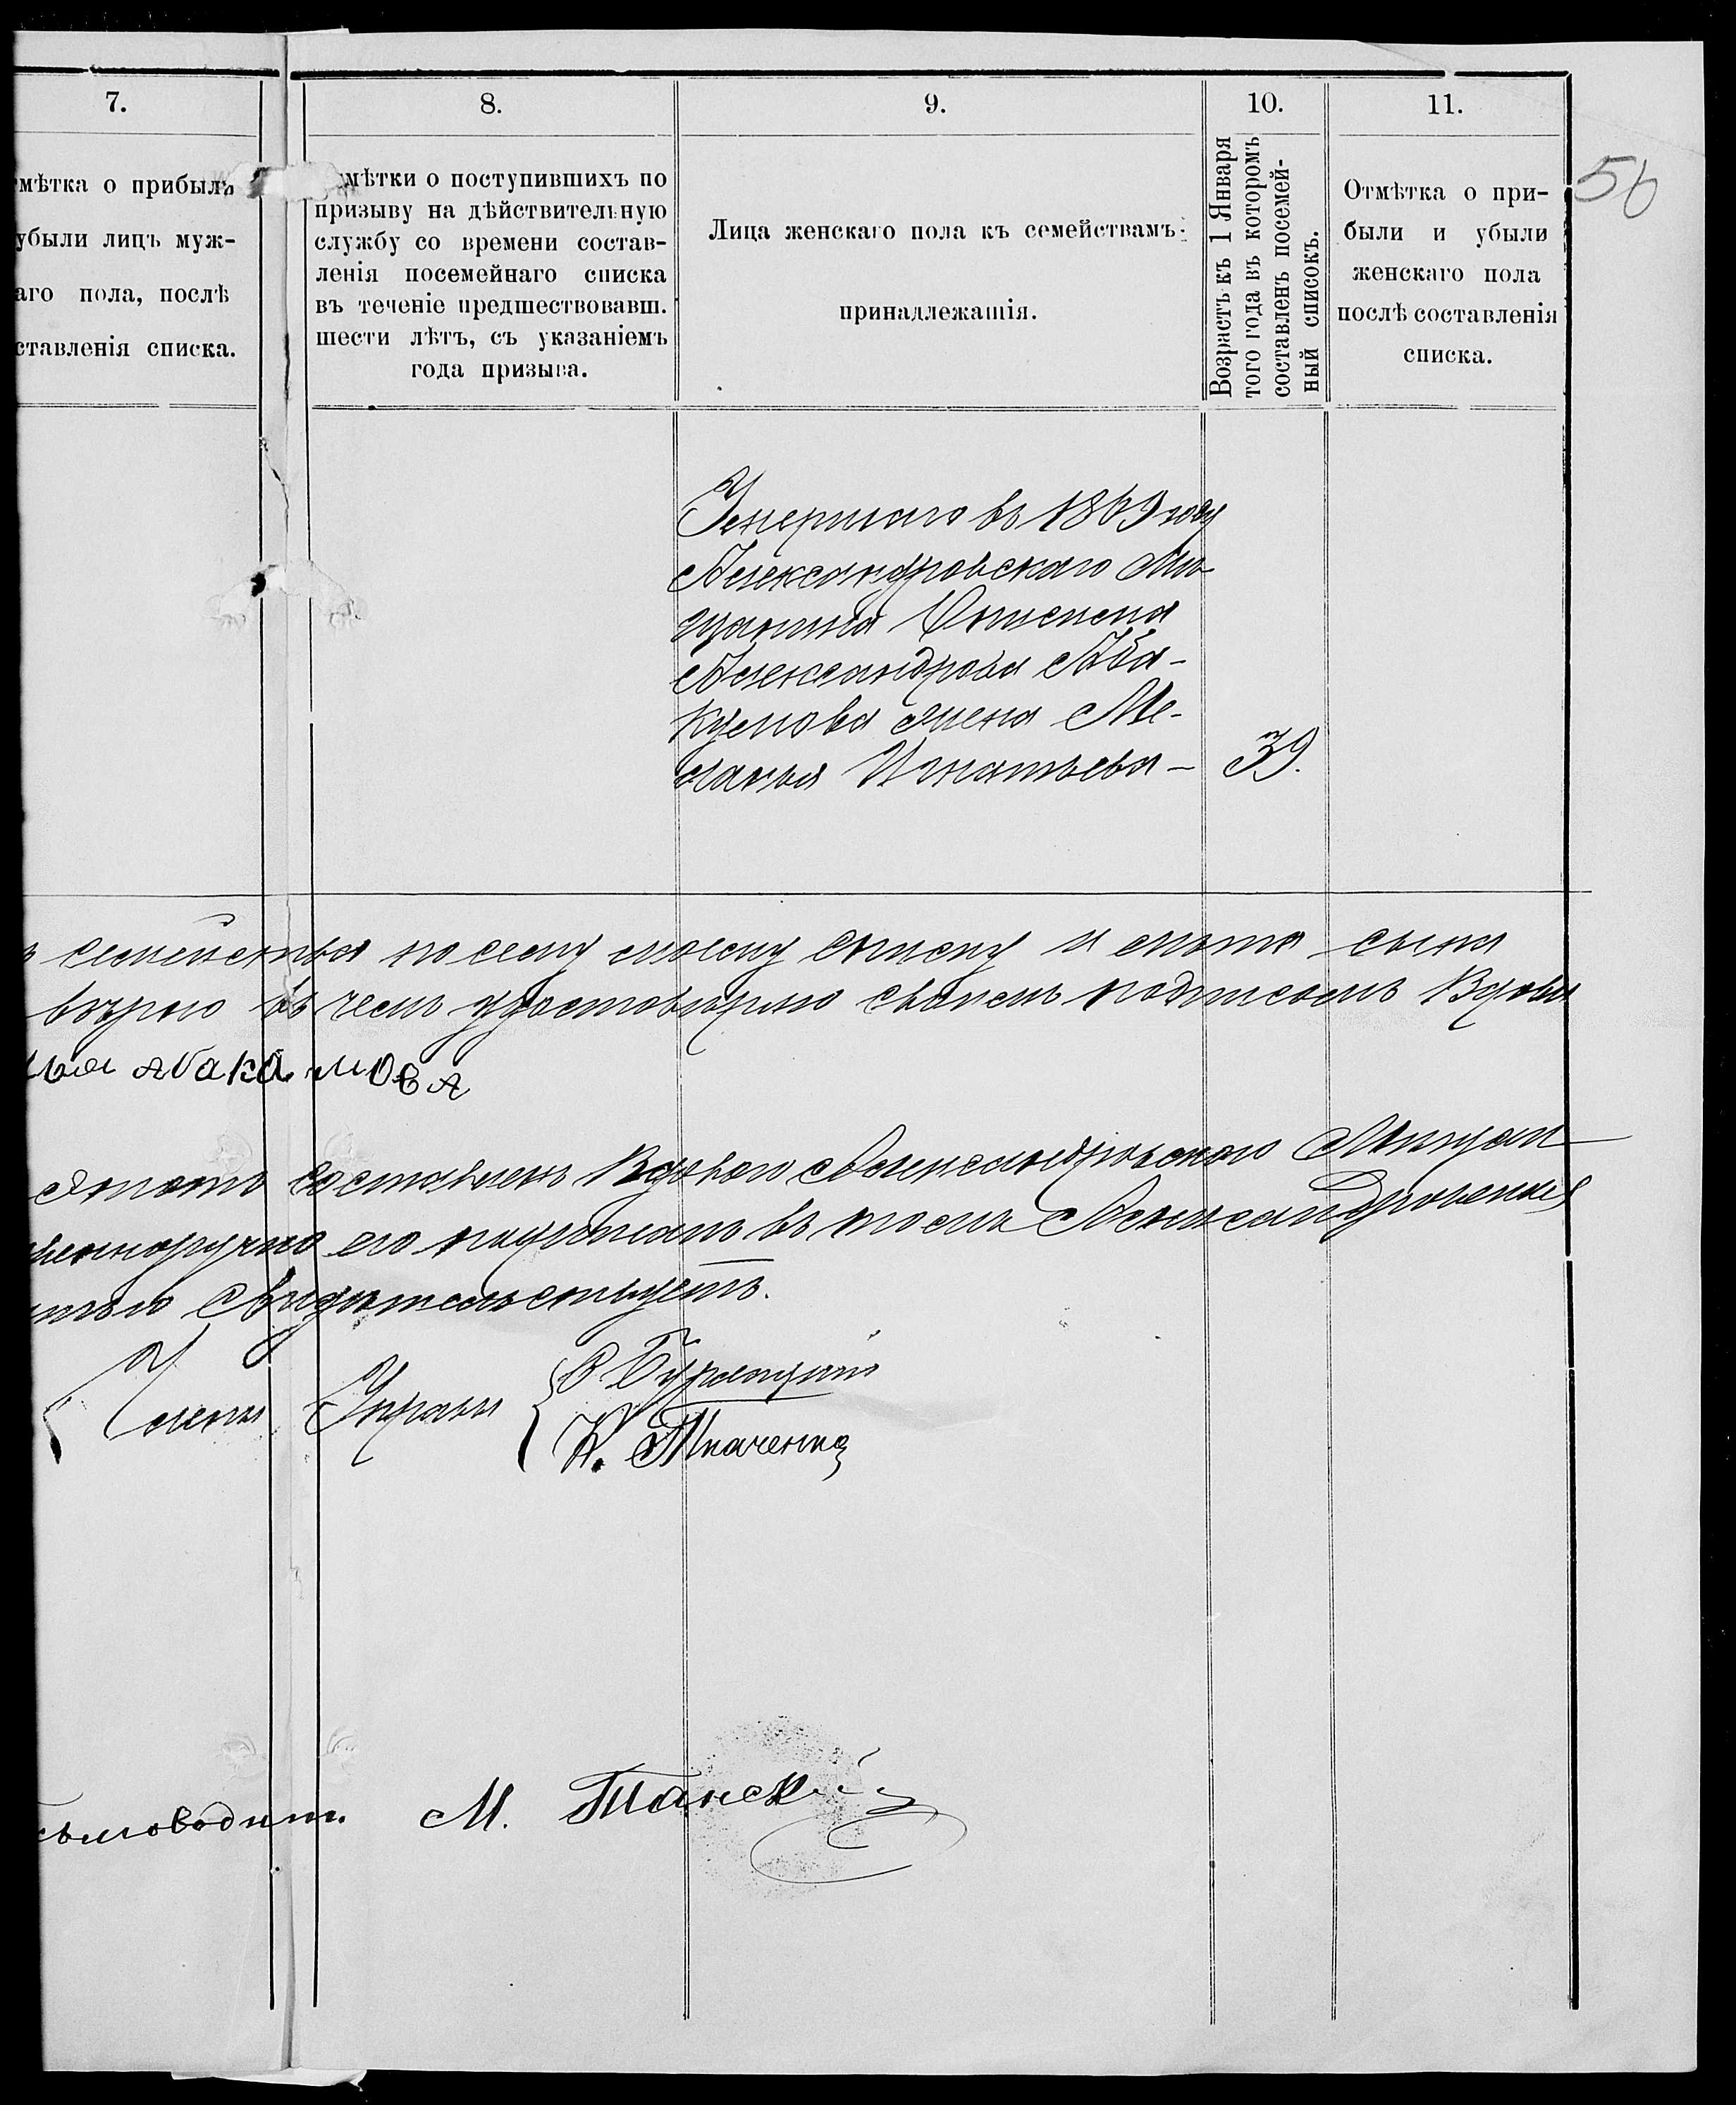 7.
8.
9.
10.
11.
56
мѣтка о прибыли
убыли лицъ муж-
аго пола, послѣ
ставленія списка.
мѣтки о поступившихъ по
призыву на дѣйствительную
службу со времени состав-
ленія посемейнаго списка
въ теченіе предшествовавш.
шести лѣтъ, съ указаніемъ
года призыва.
Лица женскаго пола къ семействамъ
принадлежащія.
Возрастъ къ 1 Января
того года въ которомъ
составленъ посемей-
ный списокъ.
Отмѣтка о при-
были и убыли
женскаго пола
послѣ составленія
списка.
Умершаго въ 1869 году
Александровскаго Мѣ-
щанина
Александрова Аба-
кумова жена Ме-
ланья Игнатьева – 39.
семейства по сему моему списку и сына
вѣрно въ чемъ удостовѣряю своею подписью Вдова
ья Абакамова
составленъ Вдовою Александровскаго Мѣщан-
собственноручно его въ томъ Александровская
свидѣтельствуетъ.
Члены Управы
К. Ткаченко
сьмоводит. М. Танскій